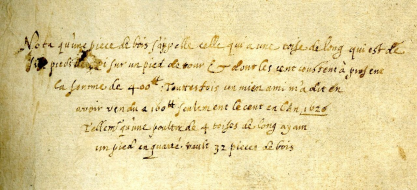 Nota qu'une piece de bois s'appelle celle qui a une toise de long qui est de
six pieds de Roi sur un pied de tour & dont les cent coustent à present
la somme de 400tt. Toutesfois un mien ami m'a dit en
avoir vendu à 160tt seulement le cent en l'An 1626
Tellemt qu'une poultre de 4 toises de long ayant
un pied en quarré. vault 32 pieces de bois